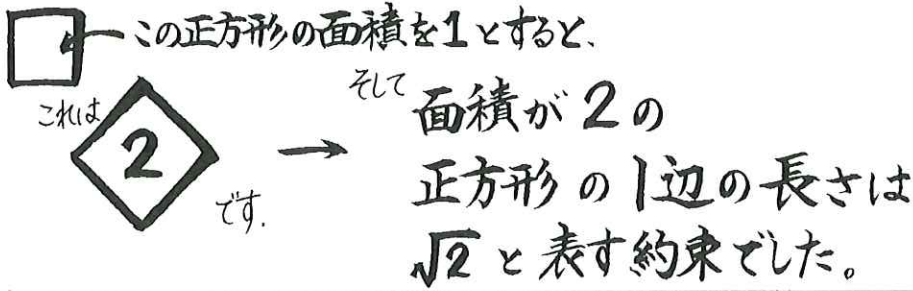 この正方形の面積を1とすると、
これは
2
です.
そして
面積が2の
正方形の1辺の長さは
√2と表す約束でした。